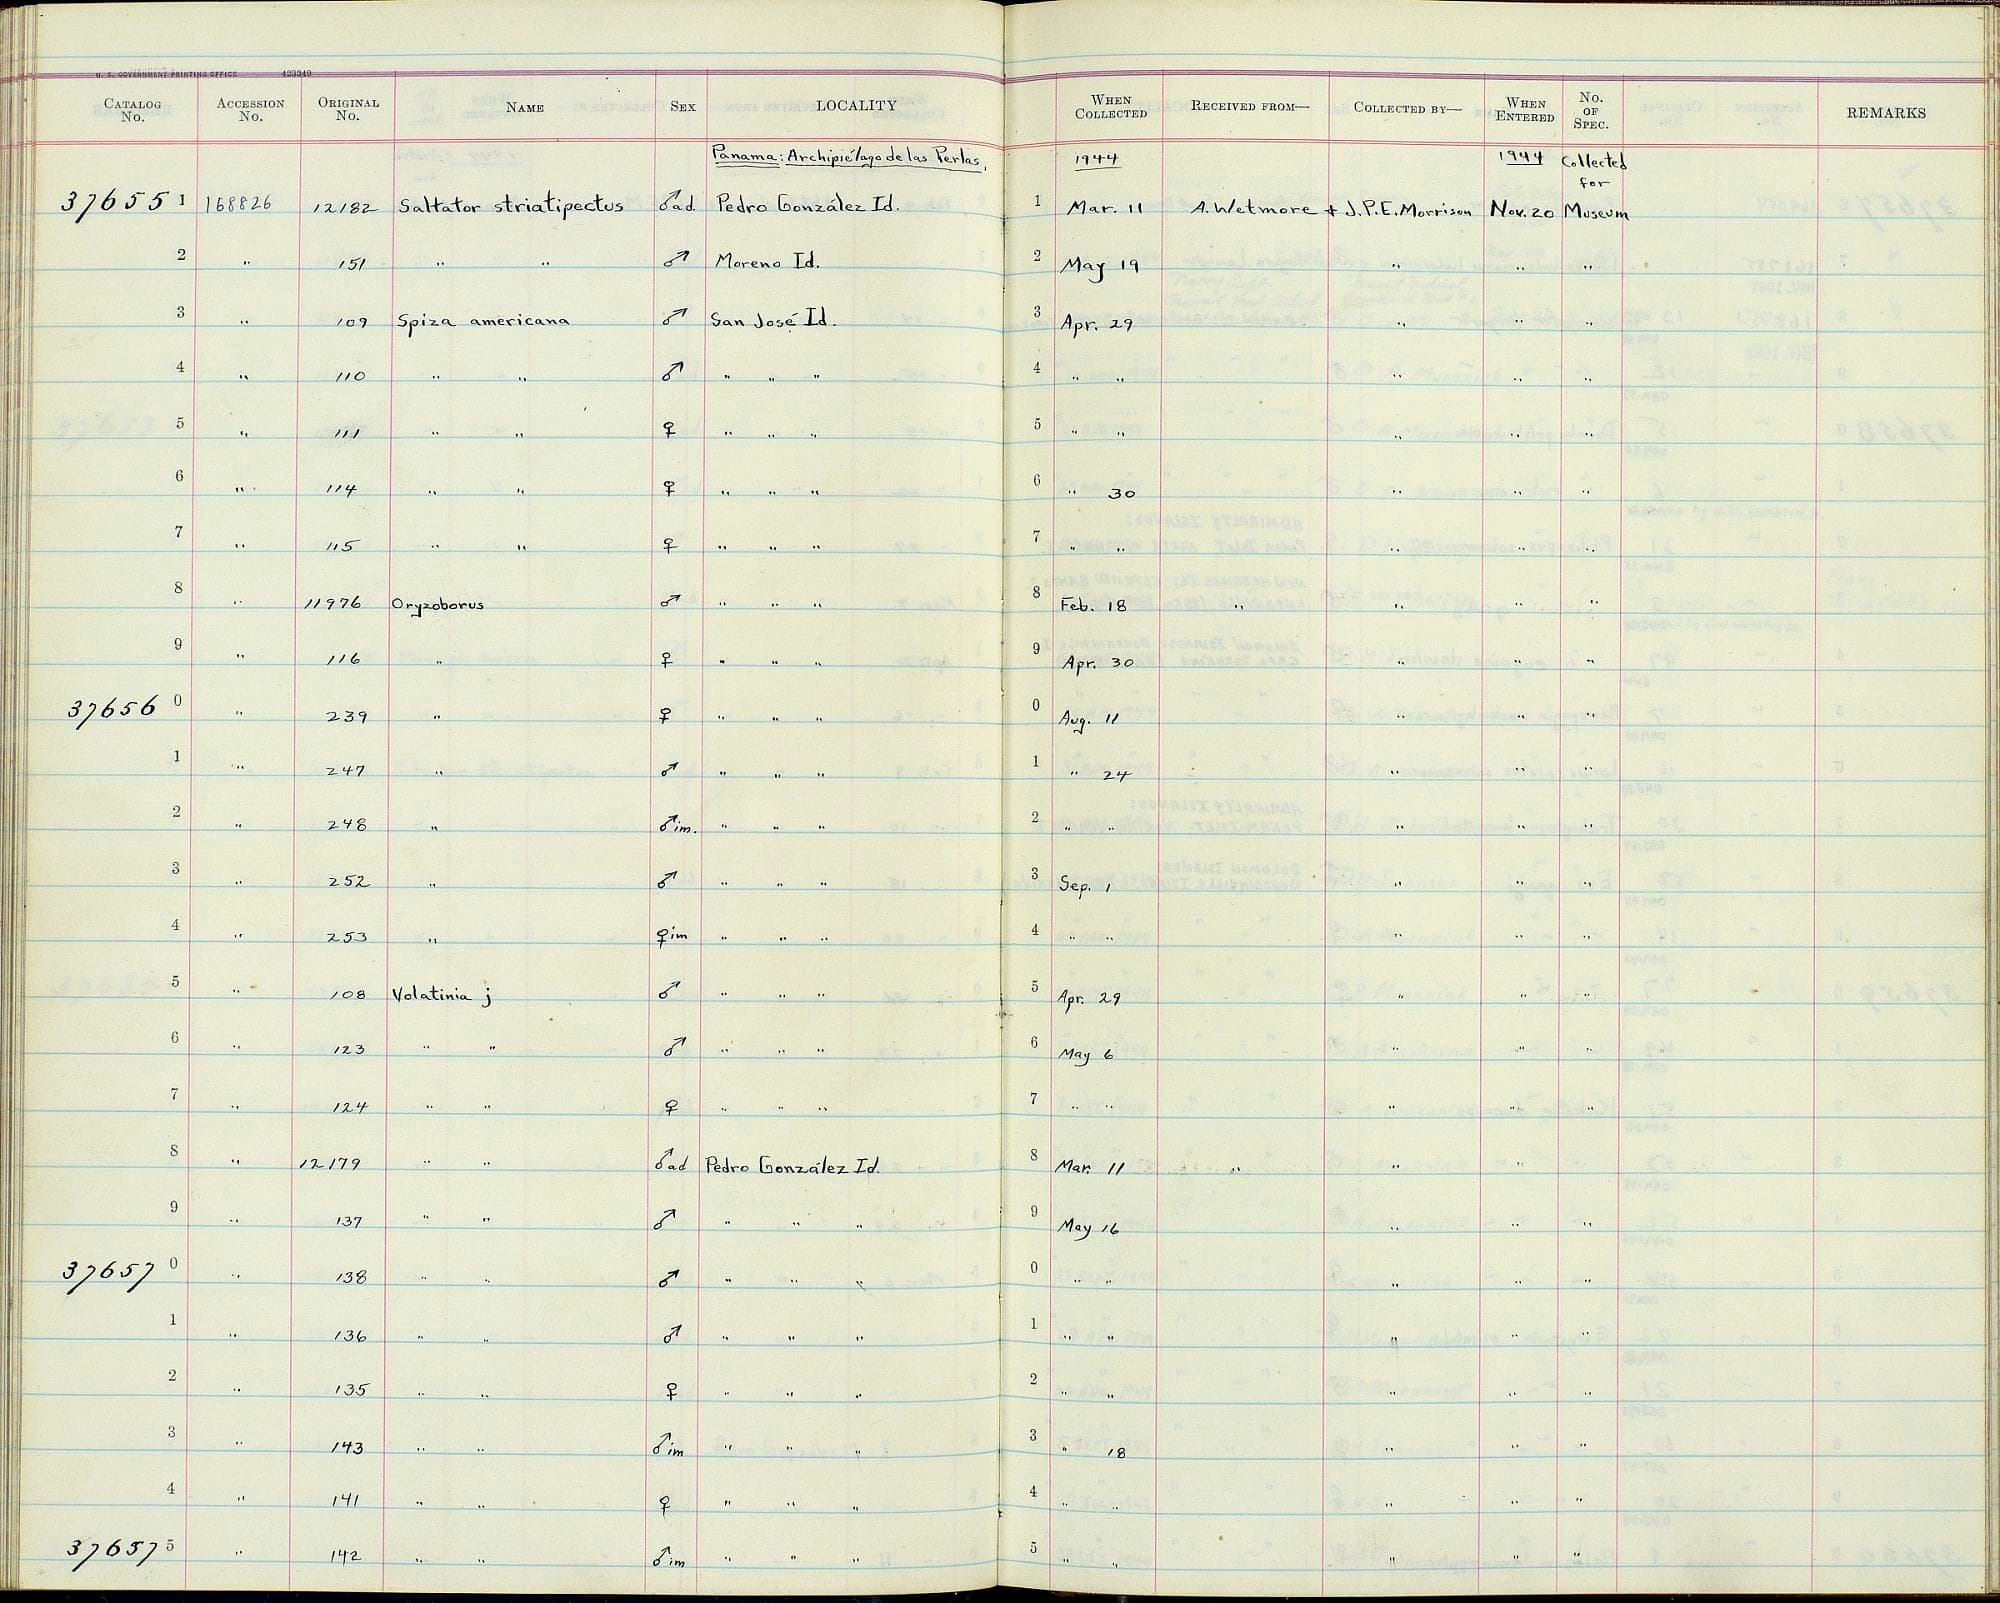 U. S. GOVERNMENT PRINTING OFFICE 423349
CATALOG No. ACCESSION No. ORIGINAL No. NAME SEX LOCALITY WHEN COLLECTED RECEIVED FROM— COLLECTED BY— WHEN ENTERED No. OF SPEC. REMARKS
Panama: Archipiélago de las Perlas, 1944 1944 Collected for
37655 1 168826 12182 Saltator striatipectus ♂ad. Pedro González Id. 1 Mar. 11 A. Wetmore + J.P.E. Morrison Nov. 20 Museum
2 " 151 " " ♂ Moreno Id. 2 May 19 " " "
3 " 109 Spiza americana ♂ San José Id. 3 Apr. 29 " " "
4 " 110 " " ♂ " " " 4 " " " " "
5 " 111 " " ♀ " " " 5 " " " " "
6 " 114 " " ♀ " " " 6 " 30 " " "
7 " 115 " " ♀ " " " 7 " " " " "
8 " 11976 Oryzoborus ♂ " " " 8 Feb. 18 " " " "
9 " 116 " ♀ " " " 9 Apr. 30 " " "
37656 0 " 239 " ♀ " " " 0 Aug. 11 " " "
1 " 247 " ♂ " " " 1 " 24 " " "
2 " 248 " ♂im. " " " 2 " " " " "
3 " 252 " ♂ " " " 3 Sep. 1 " " "
4 " 253 " ♀im " " " 4 " " " " "
5 " 108 Volatinia j ♂ " " " 5 Apr. 29 " " "
6 " 123 " " ♂ " " " 6 May 6 " " "
7 " 124 " " ♀ " " " 7 " " " " "
8 " 12179 " " ♂ad Pedro González Id. 8 Mar. 11 " " " "
9 " 137 " " ♂ " " " 9 May 16 " " "
37657 0 " 138 " " ♂ " " " 0 " " " " "
1 " 136 " " ♂ " " " 1 " " " " "
2 " 135 " " ♀ " " " 2 " " " " "
3 " 143 " " ♂im " " " 3 " 18 " " "
4 " 141 " " ♀ " " " 4 " " " " "
37657 5 " 142 " " ♂im " " " 5 " " " " "